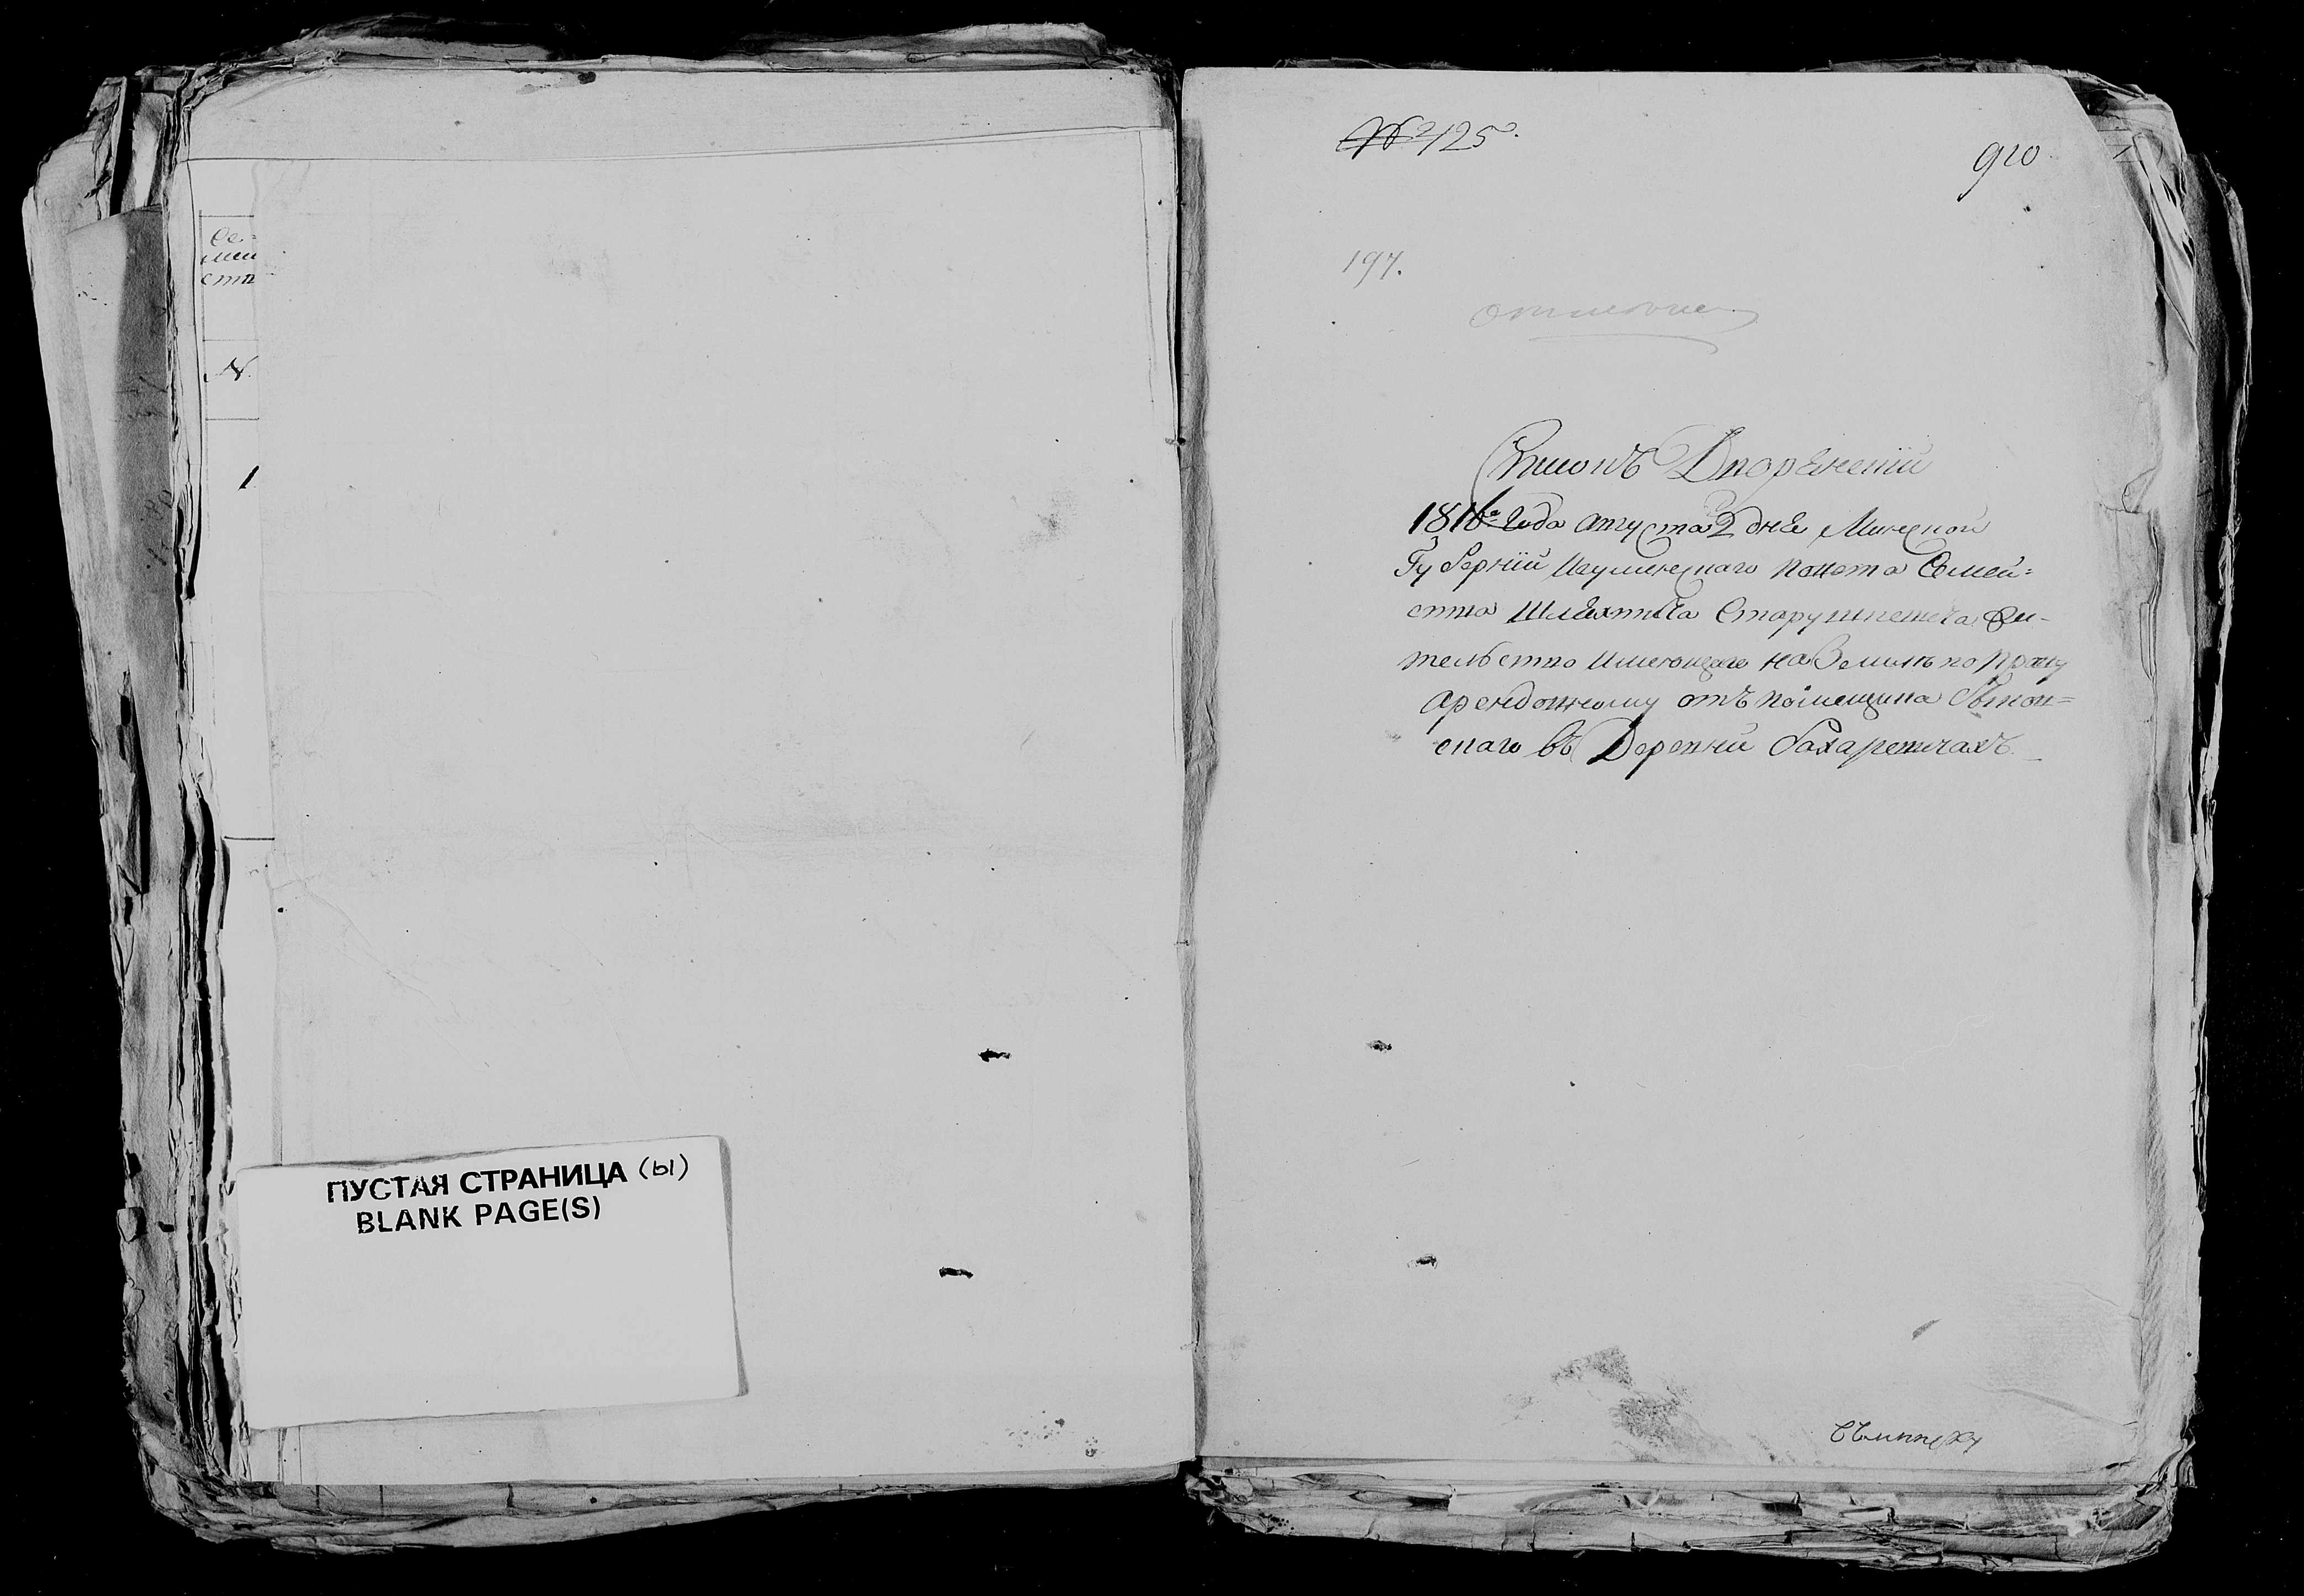 Се-
мей
ств
№
1
ПУСТАЯ СТРАНИЦА (ы)
BLANK PAGE(S)
№ 425
910
197.
Списокъ Дворянскій
1816го года августа 2 дня Минской
Губерній Игуменскаго повета Семей=
ства Шляхтича Старушкевича жи-
тельство имеющаго на Земли по праву
арендовному отъ помещика
скаго въ Деревни Захаревичахъ.